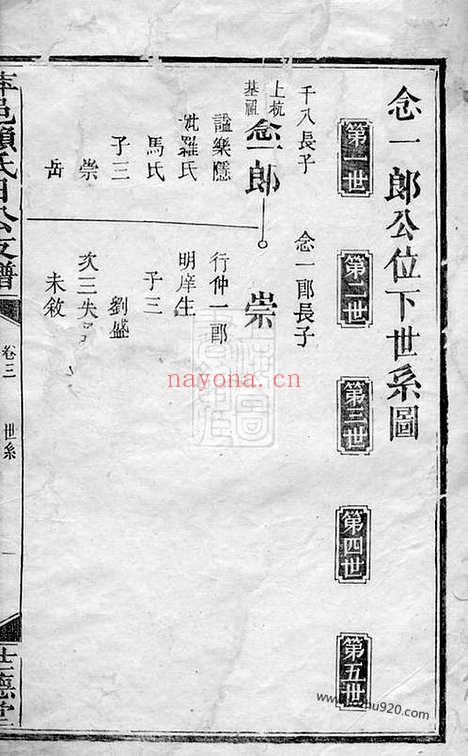 念一郎公位下世系圖
第一世
第二世
第三世
第四世
第五世
千八長子
上杭
基祖
念一郎
諡樂隱
妣羅氏
馬氏
子三
崇
岳
念一郎長子
崇
行仲一郎
明庠生
子三
劉盛
次三失
未敘
賴氏
公支譜
卷三
世系
一
世德堂
nayona.cn